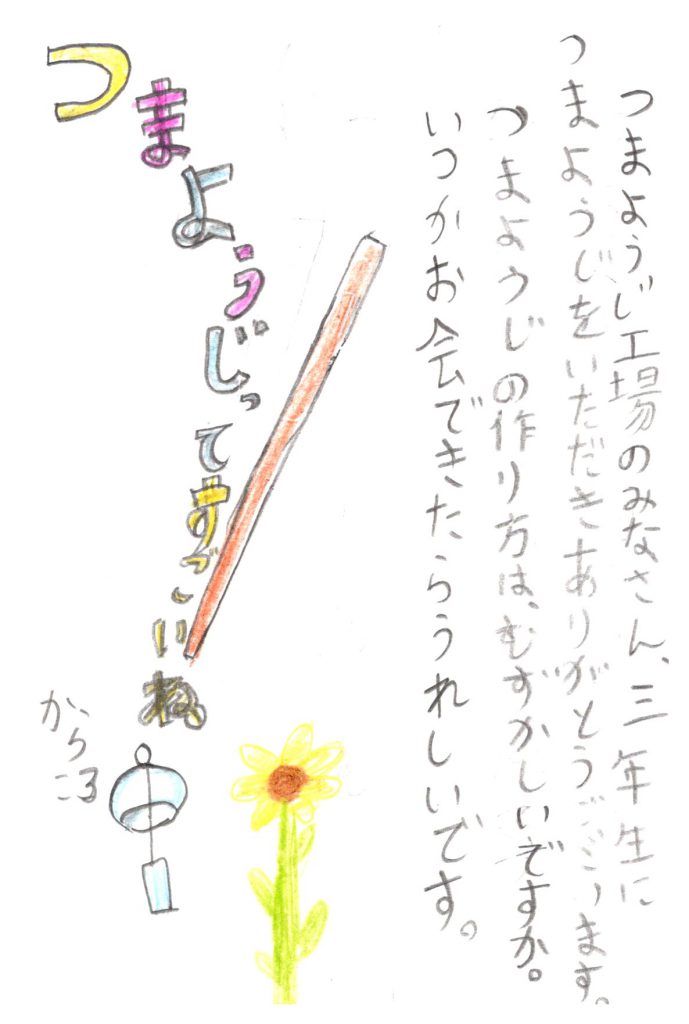 つまようじ工場のみなさん、三年生に
つまようじをいただきありがとうございます。
つまようじの作り方は、むずかしいですか。
いつかお会できたらうれしいです。
つまようじってすごいね。
からころ